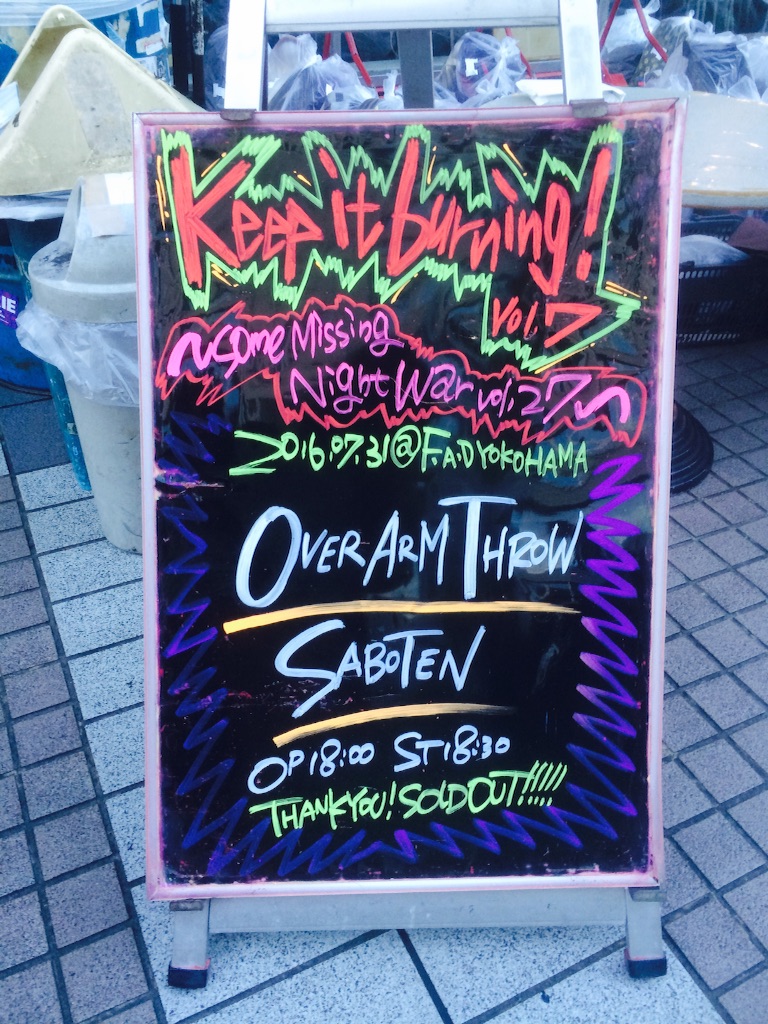 Keep it burning!
vol.7
~Some Missing
Night W@r vol.27~
2016.07.31@F.A.D YOKOHAMA
OVER ARM THROW
SABOTEN
OP18:00 ST18:30
THANK YOU! SOLD OUT!!!!!